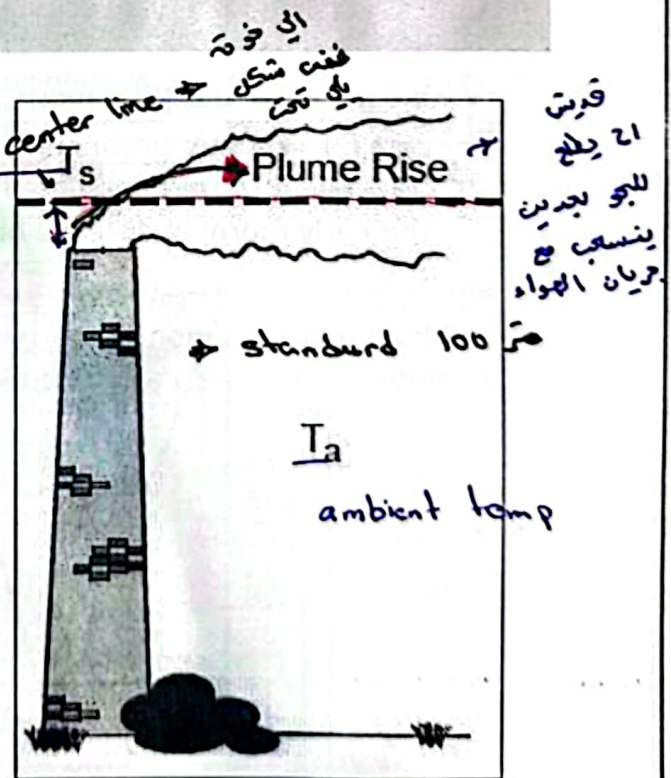 الي فوقه
شكل
يلي تحت
center line →
Ts
Plume Rise →
قديش
اح يطلع
للجو بعدين
ينسحب مع
جريان الهواء
→ standurd 100 متر
Ta
ambient temp